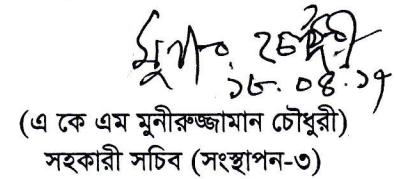 ১৮.০৪.১৭
(এ কে এম মুনীরুজ্জামান চৌধুরী)
সহকারী সচিব (সংস্থাপন-৩)